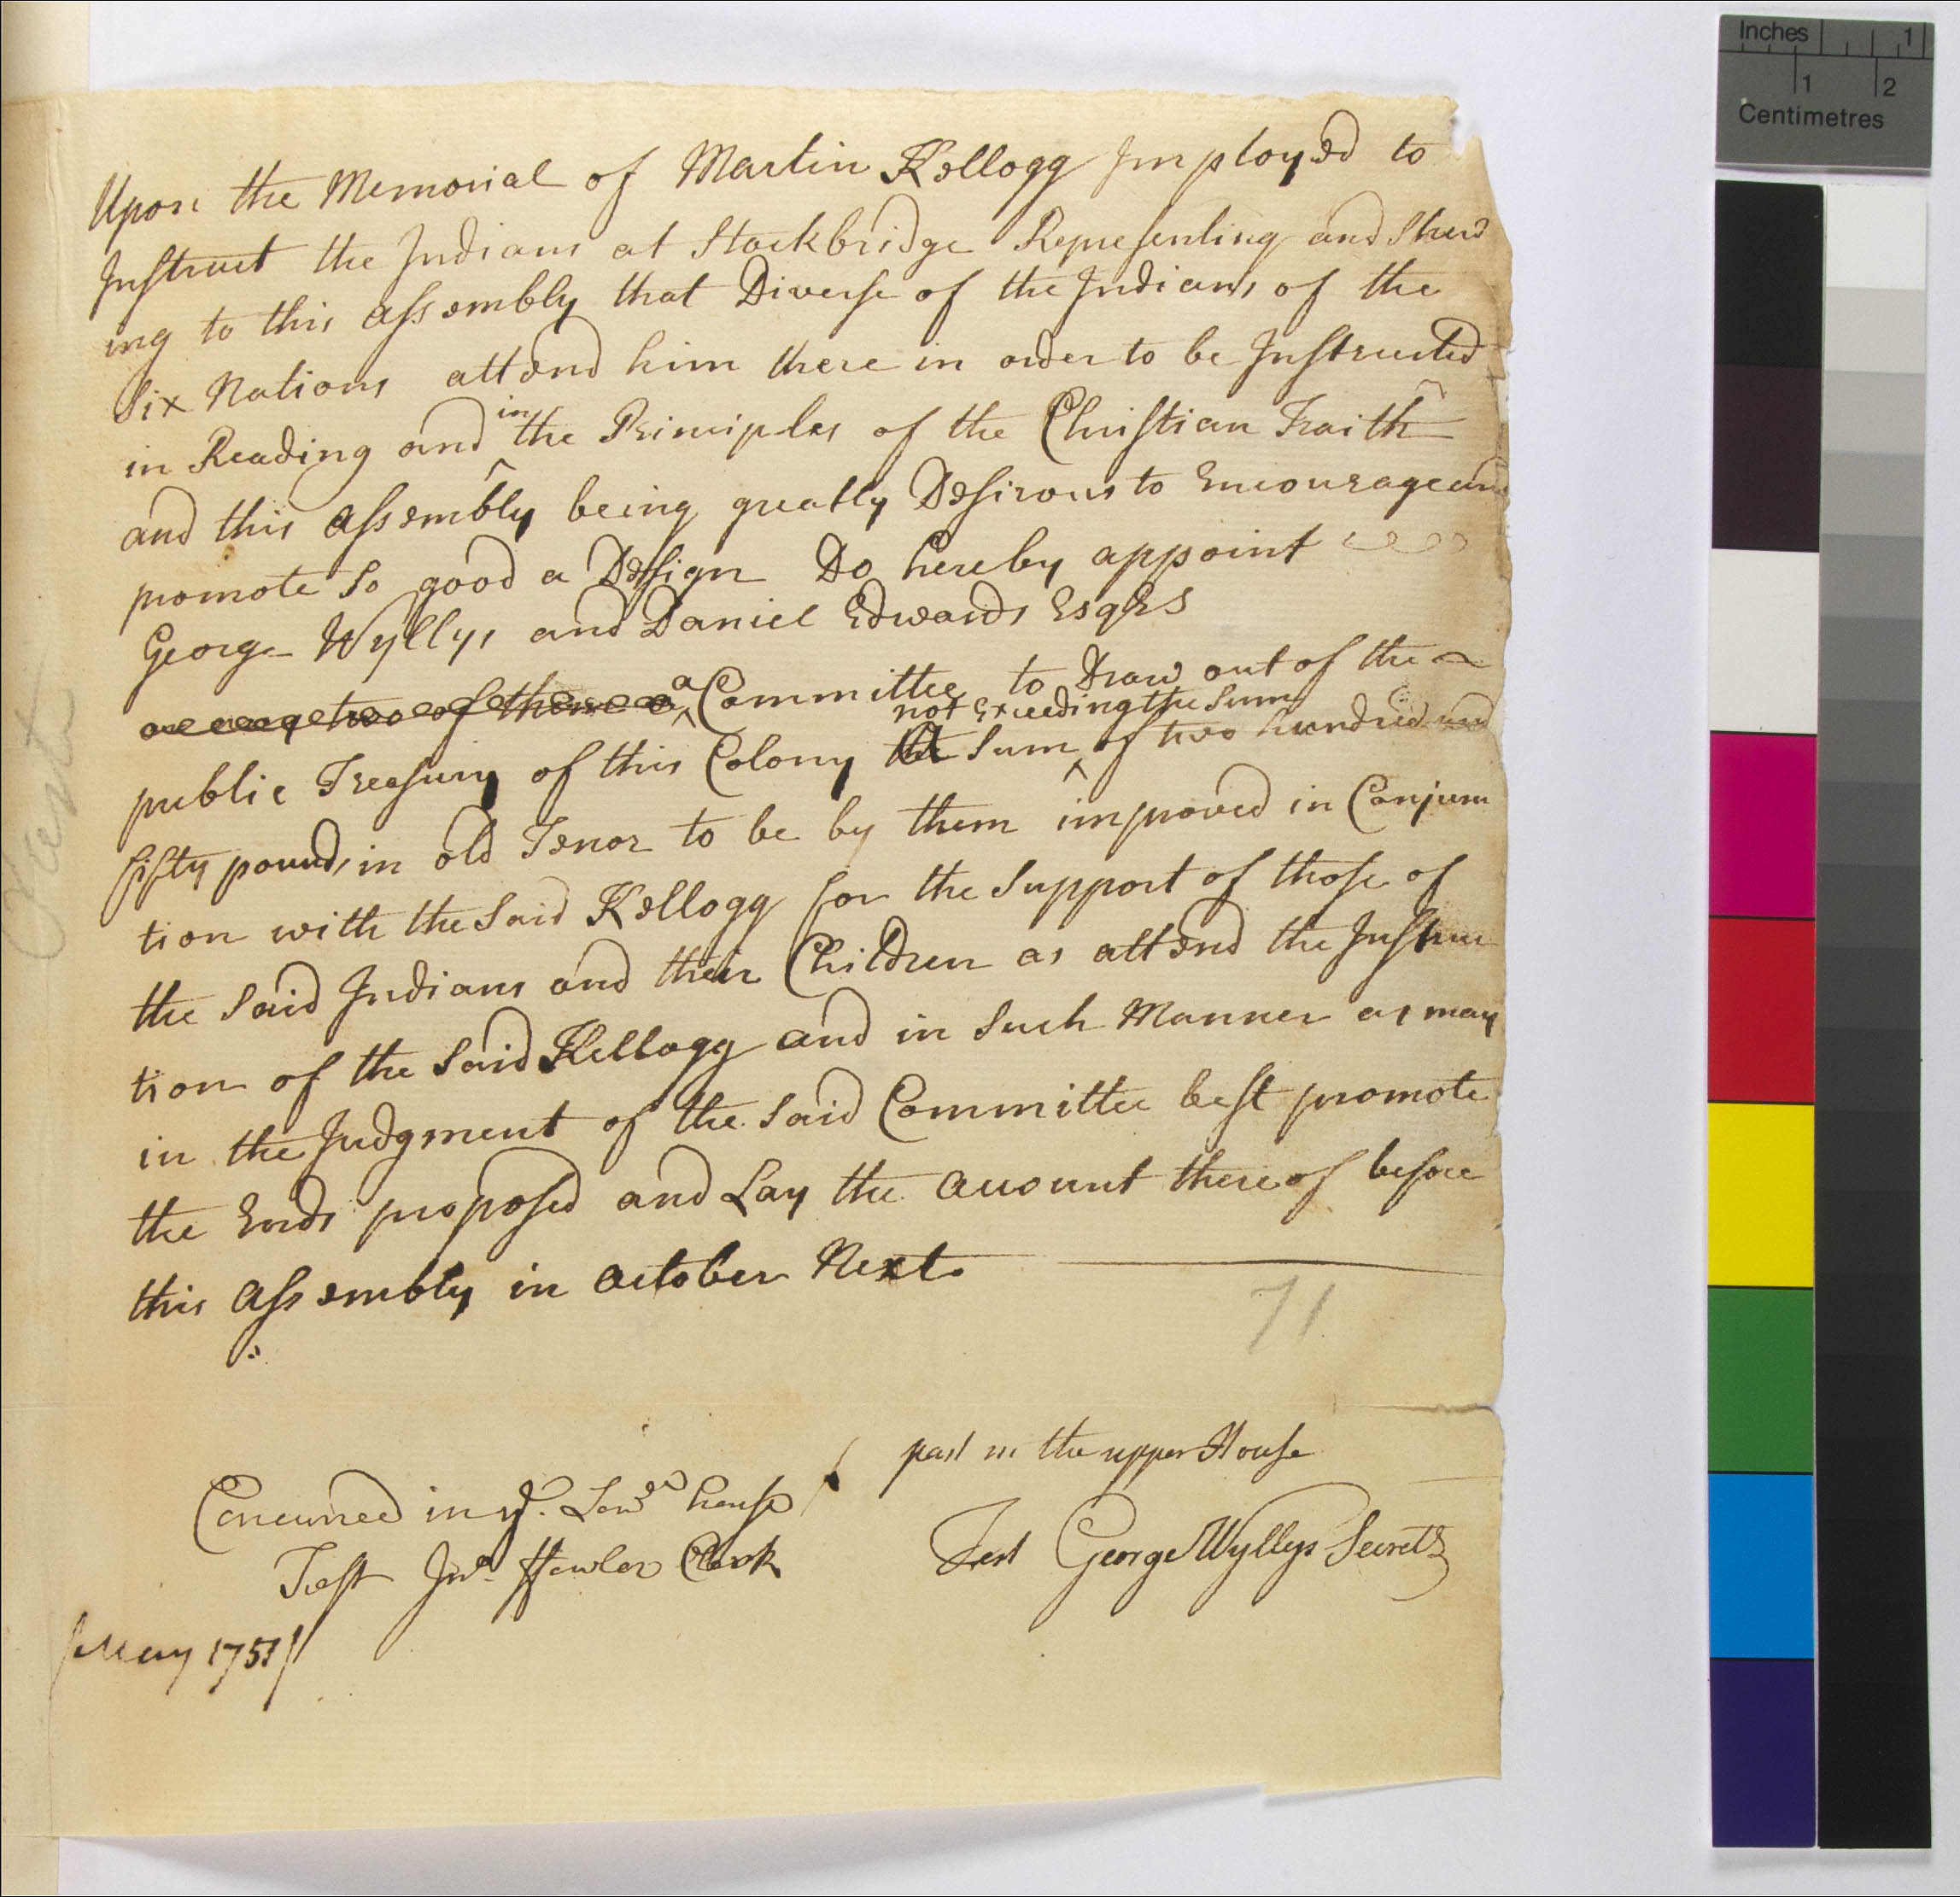 Inches 1
1 2
Centimetres
Upon the Memorial of Martin Kellogg Imployed to
Instruct the Indians at Stockbridge Representing and Shew
ing to this Assembly that Diverse of the Indians of the
Six Nations attend him there in order to be Instructed
in Reading and in the Principles of the Christian Faith
and this Assembly being greatly Desirous to Encourage and
promote so good a Design Do hereby appoint
George Wyllys and Daniel Edwards Esqrs
or any two of them a a Committee to Draw out of the
not Exceeding the Sum
public Treasury of this Colony the Sum of two hundred and
fifty pounds in old Tenor to be by them improved in Conjunc
tion with the Said Kellogg for the Support of those of
the Said Indians and their Children as attend the Instruc
tion of the Said Kellogg and in Such Manner as may
in the Judgment of the Said Committee best promote
the Ends proposed and Lay the account thereof before
this Assembly in October Next
71
past in the upper House
Test George Wyllys Secret
Concurred in ye Lowr house
Test Jno Fowler Clerk
May 1751